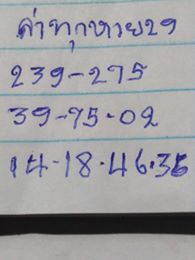 ค่าทุกหวย29
239-295
39-95-02
14-18-46-36